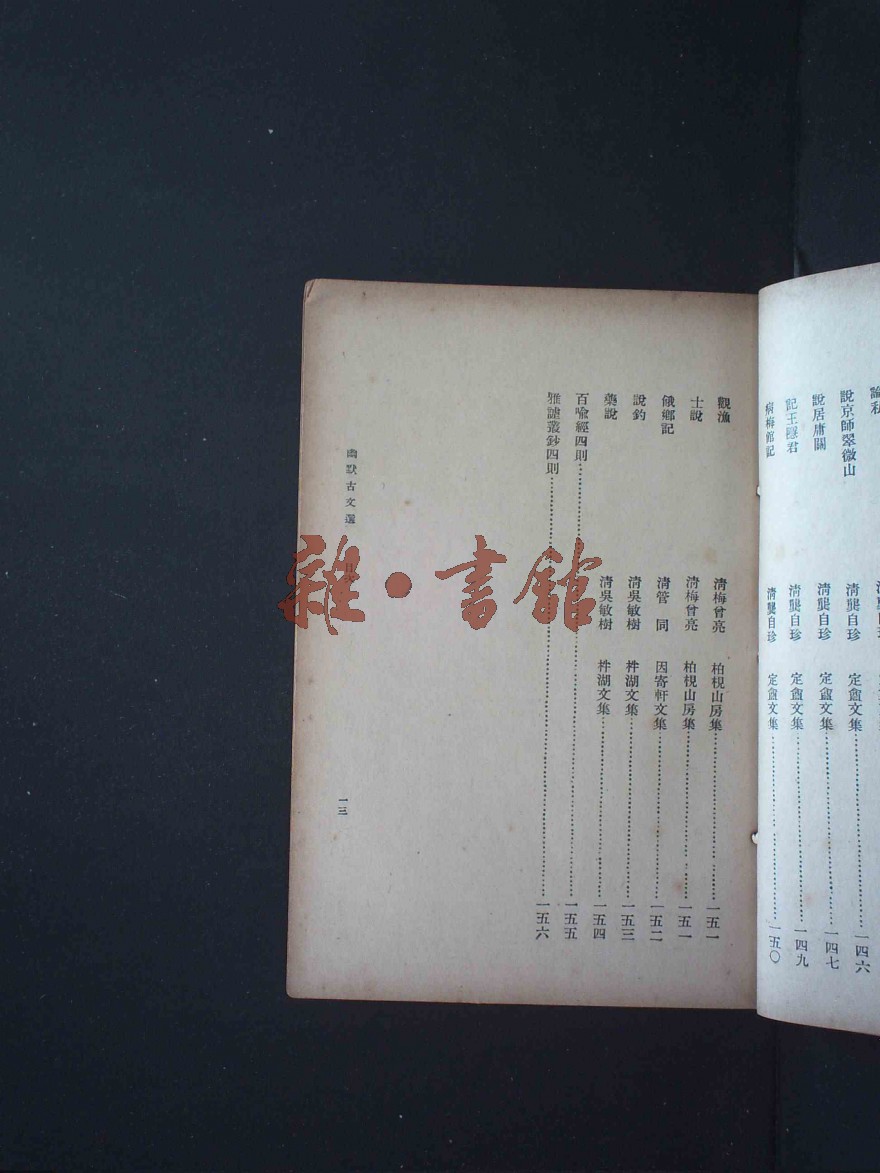 論私
說京師翠微山 清龔自珍 定盦文集 一四六
說居庸關 清龔自珍 定盦文集 一四七
記王隱君 清龔自珍 定盦文集 一四九
病梅館記 清龔自珍 定盦文集 一五〇
觀漁 清梅曾亮 柏梘山房集 一五一
士說 清梅曾亮 柏梘山房集 一五一
餓鄉記 清管同 因寄軒文集 一五二
說釣 清吳敏樹 柈湖文集 一五三
藥說 清吳敏樹 柈湖文集 一五四
百喩經四則 一五五
雅謔叢鈔四則 一五六
幽默古文選
一三
雜·書館